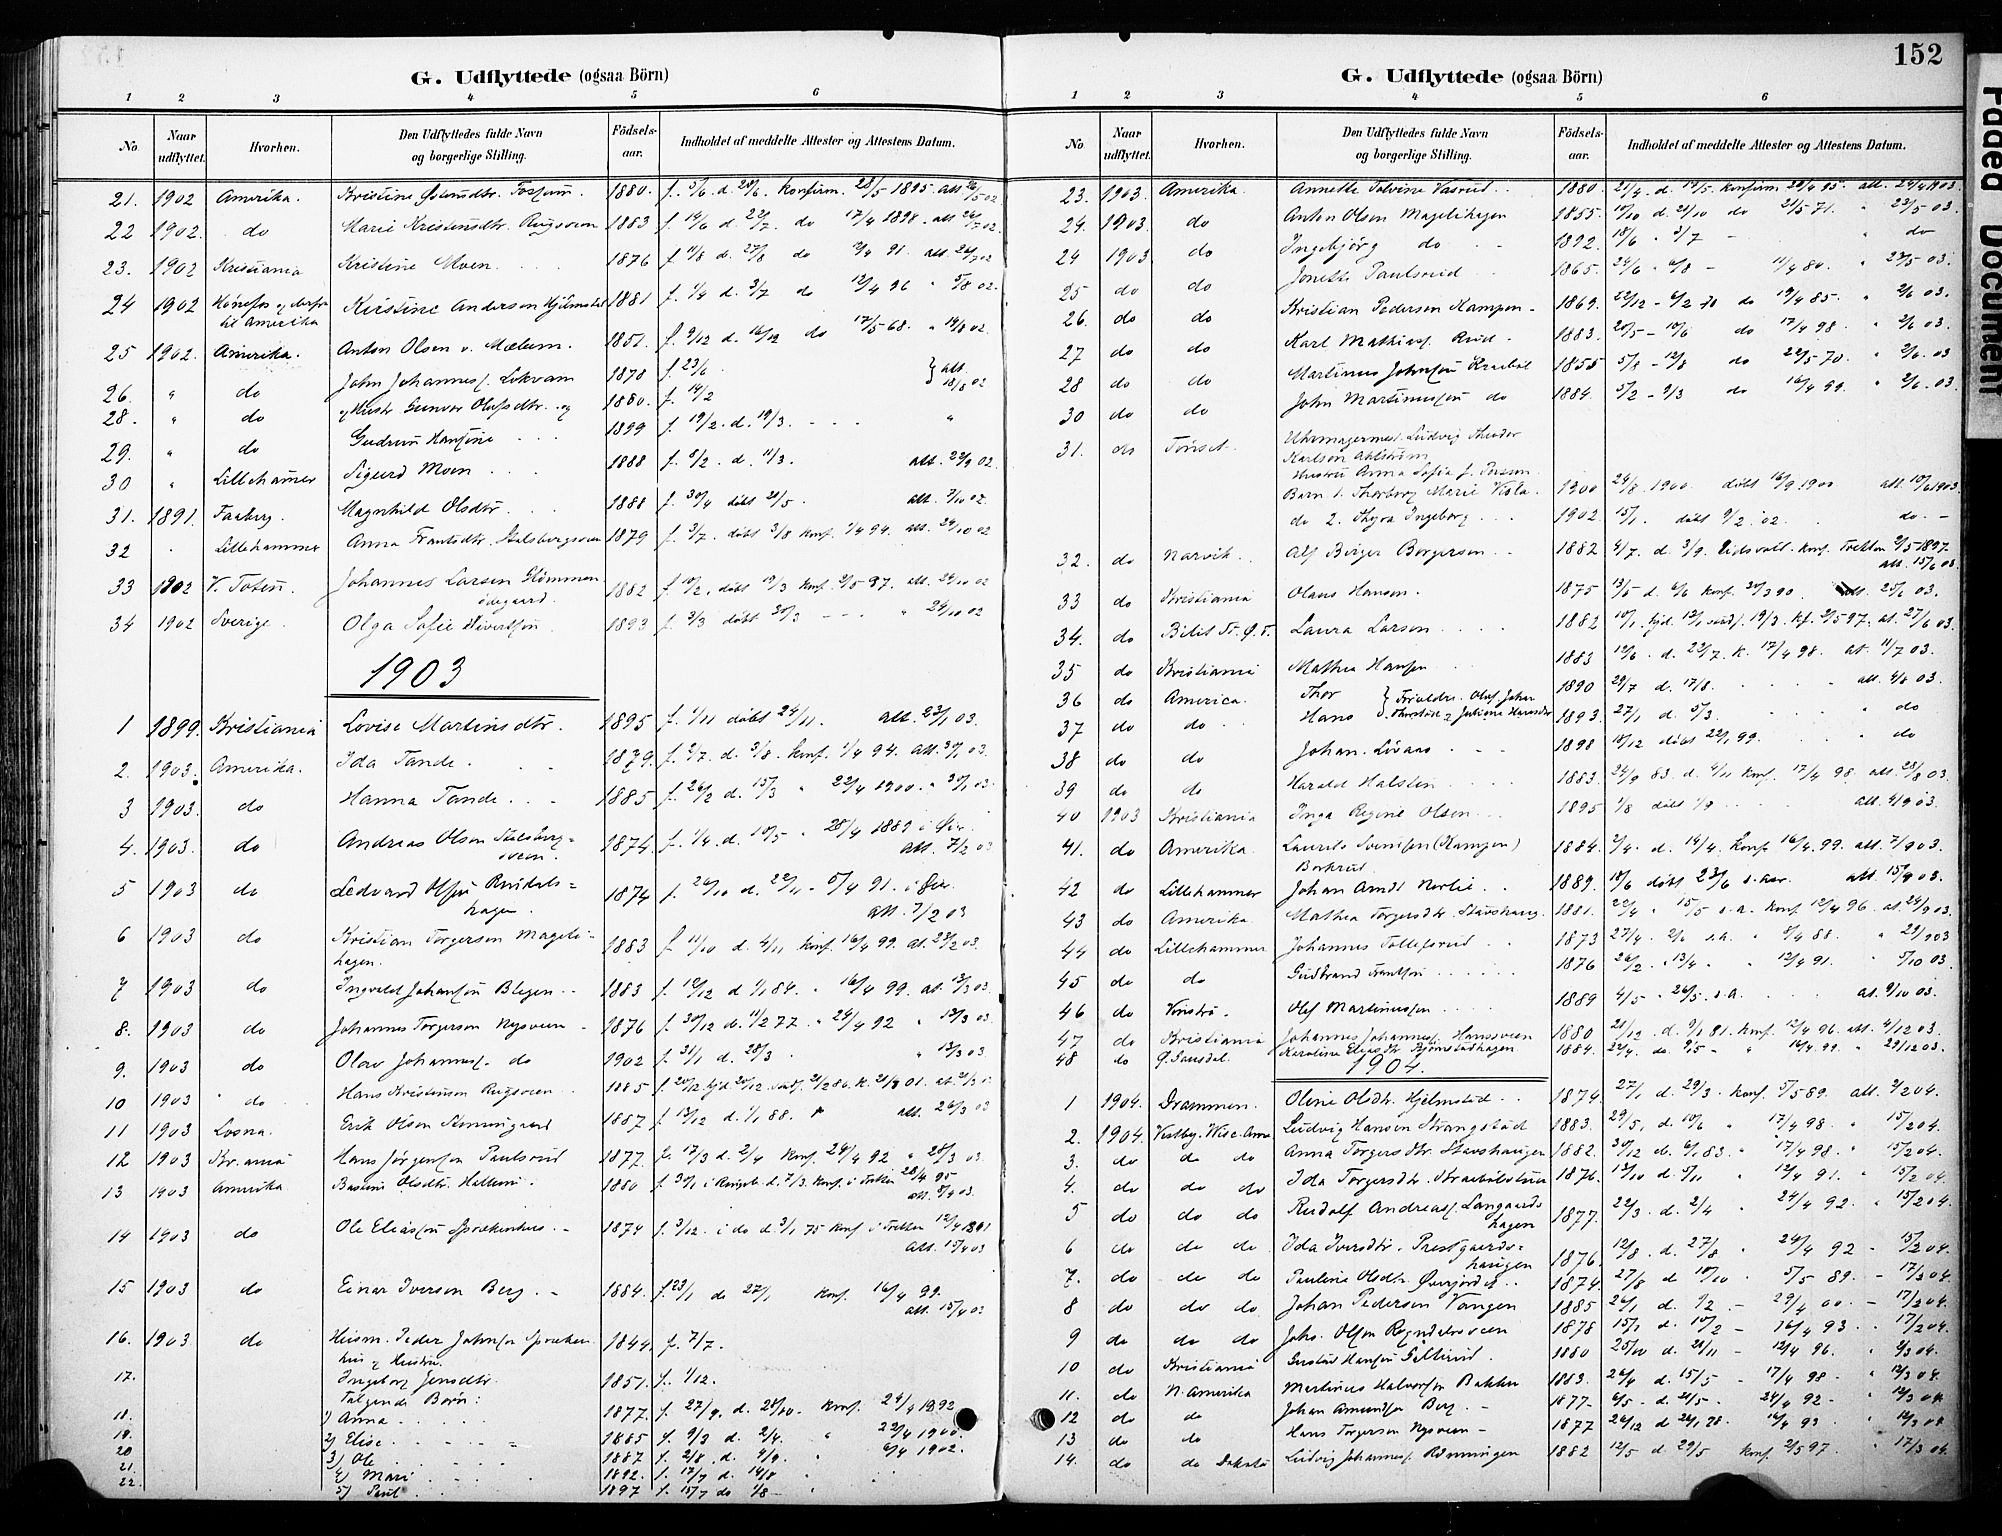 152
G. Udflyttede (ogsaa Börn)
1 2 3 4 5 6
No
Naar udflyttet.
Hvorhen.
Den Udflyttedes fulde Navn og borgerlige Stilling.
Födsels-aar.
Indholdet af meddelte Attester og Attestens Datum.
21. 1902 Amerika. Kristine 1880.
22 1902. do Marie Kristensdtr. Rugsveen 1883
23. 1902 Kristiania Kristine Moen 1876
24 1902 Hönefos og derfra til Amerika Kristine Andersen Hjelmstad 1881
25 1902. Amerika. Anton Olsen v. Mælum. 1851.
26. " do John Johanness. Lokvam 1878 f. 23/6
28. " do og Hustr Gunvor Olufsdtr. og 1880. f. 14/2
29. " do Gudrun Hansine 1899 f. 19/2. d. 19/3.
30 " Lillehamer Sigurd Moen 1888 f. 8/2. d. 11/3. att. 22/9 02.
31. 1891. Faaberg. Magnhild Olsdtr 1888 f. 30/4 döbt 21/5 att. 7/10 02.
32 Lillehammer Anna Frantsdtr. 1879 f. 3/7. döbt 3/8 konf. 1/4 94. att. 24/10 02
33 1902 V. Toten. Johannes Larsen Glömmen ödegaard. 1882 f. 10/2, döbt 19/3 konf. 2/5 97. att. 24/10 02
34 1902 Sverige. Olga Sofie 1893 f. 3/3 döbt 30/3 24/10 02
1903
1 1899. Kristiania Lovise Martinsdtr. 1895 f. 1/11 döbt 24/11. att. 23/1 03.
2. 1903. Amerika. Ida Tande. 1879. f. 2/7. d. 3/8. konf. 1/4 94. att. 30/1 03.
3 1903. do Hanna Tande. 1885 f. 26/2 d. 15/3 " 22/4 1900. " 30/1 03.
4. 1903. do Andreas Olsen 1874. f. 1/4. d. 10/5 " 28/4 1889 i Öier. att. 7/2 03
5 1903 do Ledvard Olsen Rindals=hagen. 1874 f. 26/10 d. 22/11 - 5/4 91. i Öier. att. 7/2 03
6 1903 do Kristian Torgersen Mageli-hagen. 1883 f. 11/10 d. 4/11 konf. 16/4 99. at. 28/2 03.
7 1903 do Ingvald Johansen Blegen 1883 f. 12/12 d 1/1 84. " 16/4 99. at. 13/3 03
8. 1903 do Johannes Torgersen Nysveen 1876 f. 30/12 d. 11/2 77. " 24/4 92 " 13/3 03
9. 1903 do Olav Johanness. do 1902 f. 31/1 d. 28/3 " 13/3 03
10 1903 do Hans Kristensen Rugsveen 1885
11 1903 Losna. Erik Olsen Stenningaard 1887 f. 13/12 d. 1/1 88. att. 26/3 03
12 1903 Kr.ania Hans Jörgensen Paulsrud 1877. f. 17/3 d. 2/4 konf. 24/4 92 " 28/3 03.
13 1903 Amerika Olsdtr. 1880 f. 30/1 i Ringeb. d. 7/3. konf. i Fretten 28/4 95 att. 8/4 03.
14 1903 do Ole Eliassen Sprækenhus. 1874 f. 3/12. i do d. 3/1 75 konf i Fretten 12/4 1891 att. 15/4 03
15 1903 do Einar Iversen Berg. 1884. f. 23/1 do 27/1 konf. 16/4 99. att. 15/4 03
16. 1903 do Husm. Peder Johnsen Spræken hus og Hustru. 1844. f. 7/7.
17. Ingeborg Jensdtr. 1851. f. 1/12.
Følgende Børn:
18. 1) Anna 1877. f. 27/9. d. 28/10 konf. 24/4 1892
19. 2) Elise 1885 f. 9/3 d. 2/4. " 22/4 1900.
20 3) Ole 1887 f. 2/8. d. 4/9. " 6/4 1902.
21. 4) Mari 1892. f. 17/7 d. 14/8
22. 5) Paul 1897 f. 15/7 do 1/8
G. Udflyttede (ogsaa Börn)
1 2 3 4 5 6
No
Naar udflyttet.
Hvorhen.
Den Udflyttedes fulde Navn og borgerlige Stilling.
Födsels-aar.
Indholdet af meddelte Attester og Attestens Datum.
23. 1903. Amerika. Annette Tolvine Vasrud 1880. 21/4. d. 17/5. konfirm 28/4 95. att. 24/4 1903.
24. 1903. do Anton Olsen Magelihagen 1855. 14/10 d. 21/10 do 21/5 71. " 23/5 03.
24 1903. do Ingebjörg do 1892. 18/6 " 3/7 " do
25 do do Jonette Paulsrud 1865. 11/4 80. " 23/5 03.
26. do do Kristian Pedersen Kampen 1869. do 19/4 85. " 2/6 03.
27 do do Karl Mathiass. Rud. 1883. 20/5 - 10/6 do 17/4 98 " 2/6 03.
28 do do Martinus Johnsen Kraabøl 1855 5/8 - 12/8 do 22/5 70. " 2/6. 03
30 do do John Martinussen do 1884. 5/2 - 9/3 do 16/4 99. " 2/6. 03.
31. do Tönset. Uhrmagermest. Ludvig Theodor Karlsen Ahlström
Hustru Anna Sofia f. Persson
Barn 1. Thorborg Marie Viola. 1900 24/8. 1900. döbt 16/9. 1900 att. 10/6 1903.
do 2. Thyra Ingeborg 1902. 15/1. döbt 9/2 '02. do. -
32. do Narvik. Alf Birger Borgersen 1882 4/7. d. 3/9. Eidsvoll. konf. Fretten 2/5 1897. att. 15/6 03.
33 do Kristiania Olaus Hansen. 1875 13/5 d. 6/6 konf. 20/3 90. att. 25/6 03.
34. do Laura Larsen 1882
35 do Kristiania Mathea Hansen 1883 12/6. d. 22/7. k. 17/4 98. at. 11/7 03.
36 do America. Thor 1890 29/7 d. 17/8. att. 4/8 03.
37 do do Hans 1893. 27/1 d. 5/3. " do
} Forældre. Oluf Johan
38 do do Johan. 1898 18/12 döbt 22/1 99. " do
39 do do Harald Halsten 1883. 24/9 83. d. 4/11 konf. 17/4 98 att. 28/8 03.
40 1903 Kristiania Inga Regine Olsen 1895 1/8 döbt 1/9 att. 4/9 03.
41. do Amerika. Laurits Svendsen (Kampen) Borkrud. 1884. 2/4. d. 14/4. konf 16/4. 99. att. 7/9 03.
42 do Lillehammer Johan Arndt Nerlie 1889. 18/6 döbt 23/6 att. 15/9 03.
43 do Amerika. Mathea Torgersdtr. Stavshaug. 1881. 22/4 " 15/5 s.a. konf 12/4 96. at. 24/9 03.
44 do Lillehammer Johannes Tollefsrud 1873 27/4. 2/6 s.a. " 8/4 88. " 29/9 03
45 do do Gudbrand Frantsen 1876 26/2. " 13/4 " " 12/4 91. " 5/10 03.
46 do Vinstra. Olaf Martinussen 1889 4/5 " 26/5. s.a. at. 9/10 03.
47 do Kristiania Johannes Johanness. Hanssveen 1880 21/12. d. 9/1 81. konf. 12/4 96. att. 4/12 03.
48 do Ø. Gausdal. Karoline Eliasdtr. Bjørnstadhagen 1884. 22/4. do 9/5 " 16/4 99. " 29/12 03.
1904.
1 1904. Drammen. Oline Olsdtr. Hjelmstad 1874. 27/1 d. 29/3. konf 5/5 89. att. 2/2 04.
2. 1904. Vestby. Wisc. Ama Ludvig Hansen Strangstad 1883. 29/5, d. 10/6 " 17/4 98. " 15/2 04.
3. do do do Anna Torgersdtr. Stavshaugen 1882. 30/12 d. 6/1 83. " 17/4 98. " 15/2 04.
4. do do do Ida Torgersdtr. Kraabølstuen 1876. 13/10 d. 5/11 " 12/4 91. " 15/2 04.
5 do do do Rudolf Andreass. Langaards hagen 1877. 22/3. d. 2/4 " 24/4 92. " 15/2 04.
6 do do do Ida Iversdtr. Prestgaards=haugen 1876. 12/8. d. 27/8 " 24/4 92 - 15/2 04.
7. do do do Pauline Olsdtr. 1874. 27/8 d 18/10 " 5/5 89. - 17/3 04.
8 do do do Johan Pedersen Vangen 1885 26/1 d. 1/2. - 29/4 00. - 17/3 04.
9 do do do Johs. Olsen Rogndalssveen 1878 15/1 d. 10/2 - 16/4 93. 17/2 04.
10 do Kristiania Gustav Hansen 1880 25/10 d. 21/11 - 12/4 96. " 9/3 04.
11. do N. Amerika Martinus Halvorsen Bakken 1883. 26/4 d. 15/5 - 17/4 98 - 12/3 04.
12 do do Johan Amundsen Berg. 1877. 6/5 - d. 21/5 - 24/4 92 - 12/3 04.
13 do do Hans Torgersen Nysveen 1877 26/12 d 24/1 78. 16/4 93. 12/3 04
14. do do Dakota Ludvig Johanness. Rönningen 1882 12/5 d. 29/5 konf. 2/5 97. " 17/3 04.
Faded Document